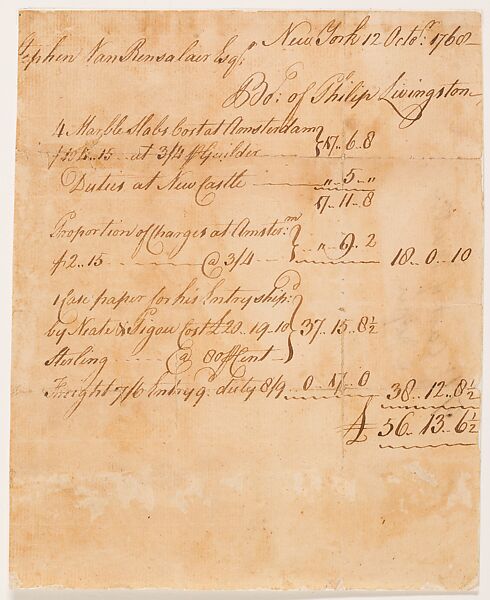 New York 12 Octor. 1768
Stephen Van Rensalaer Esqr.
Bot. of Philip Livingston
4 Marble Slabs Cost at Amsterdam
15 at 3/4 Guilder 17.. 6.. 8
Duties at New Castle " .. 5 .. "
17.. 11.. 8
Proportion of Charges at Amsterm.
f 2.. 15 @ 3/4 " .. 9.. 2 18.. 0.. 10
1 Case paper for his Entry shipd.
by Neate & Pigou Cost £20..19..10 37.. 15.. 8½
Sterling @ 80 Cent
Freight 7/6 Entry & duty 8/9 0.. 17.. 0 38.. 12.. 8½
£ 56.. 13.. 6½